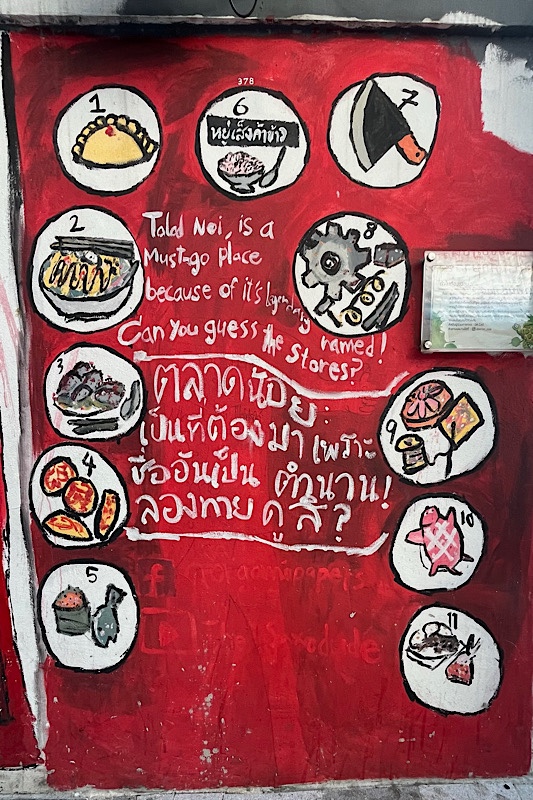 378
1
6
หยู่เส็งค้าข้าว
7
2
Talad Noi, is a
Must-go place
because of it's legendary named!
Can you guess the stores?
8
3
ตลาดน้อย
เป็นที่ต้องมา เพราะ
ชื่ออันเป็น ตำนาน!
ลองทาย ดูสิ?
9
4
10
5
11